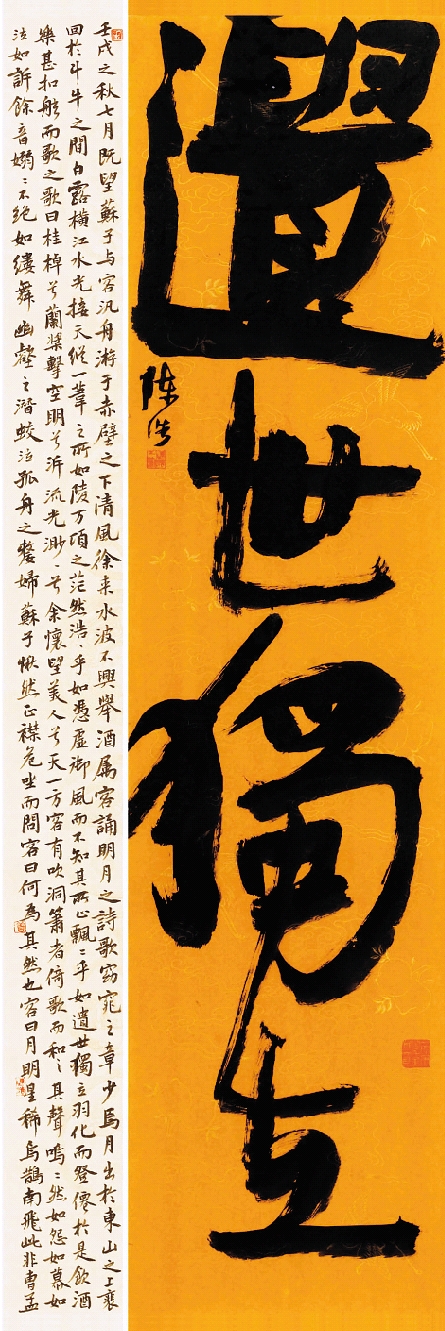 遺世獨立
陈浩
壬戌之秋七月既望蘇子与客汎舟游于赤壁之下清風徐来水波不興舉酒属客誦明月之詩歌窈窕之章少焉月出於東山之上裵
回於斗牛之間白露橫江水光接天縱一葦之所如陵万頃之茫然浩〻乎如憑虛御風而不知其所止飄〻乎如遺世獨立羽化而登僊於是飲酒
樂甚扣舷而歌之歌曰桂棹兮蘭槳擊空明兮泝流光渺〻兮余懷望美人兮天一方客有吹洞簫者倚歌而和〻其聲嗚〻然如怨如慕如
泣如訴餘音嫋〻不絕如縷舞幽壑之潛蛟泣孤舟之嫠婦蘇子愀然正襟危坐而問客曰何為其然也客曰月明星稀烏鵲南飛此非曹孟